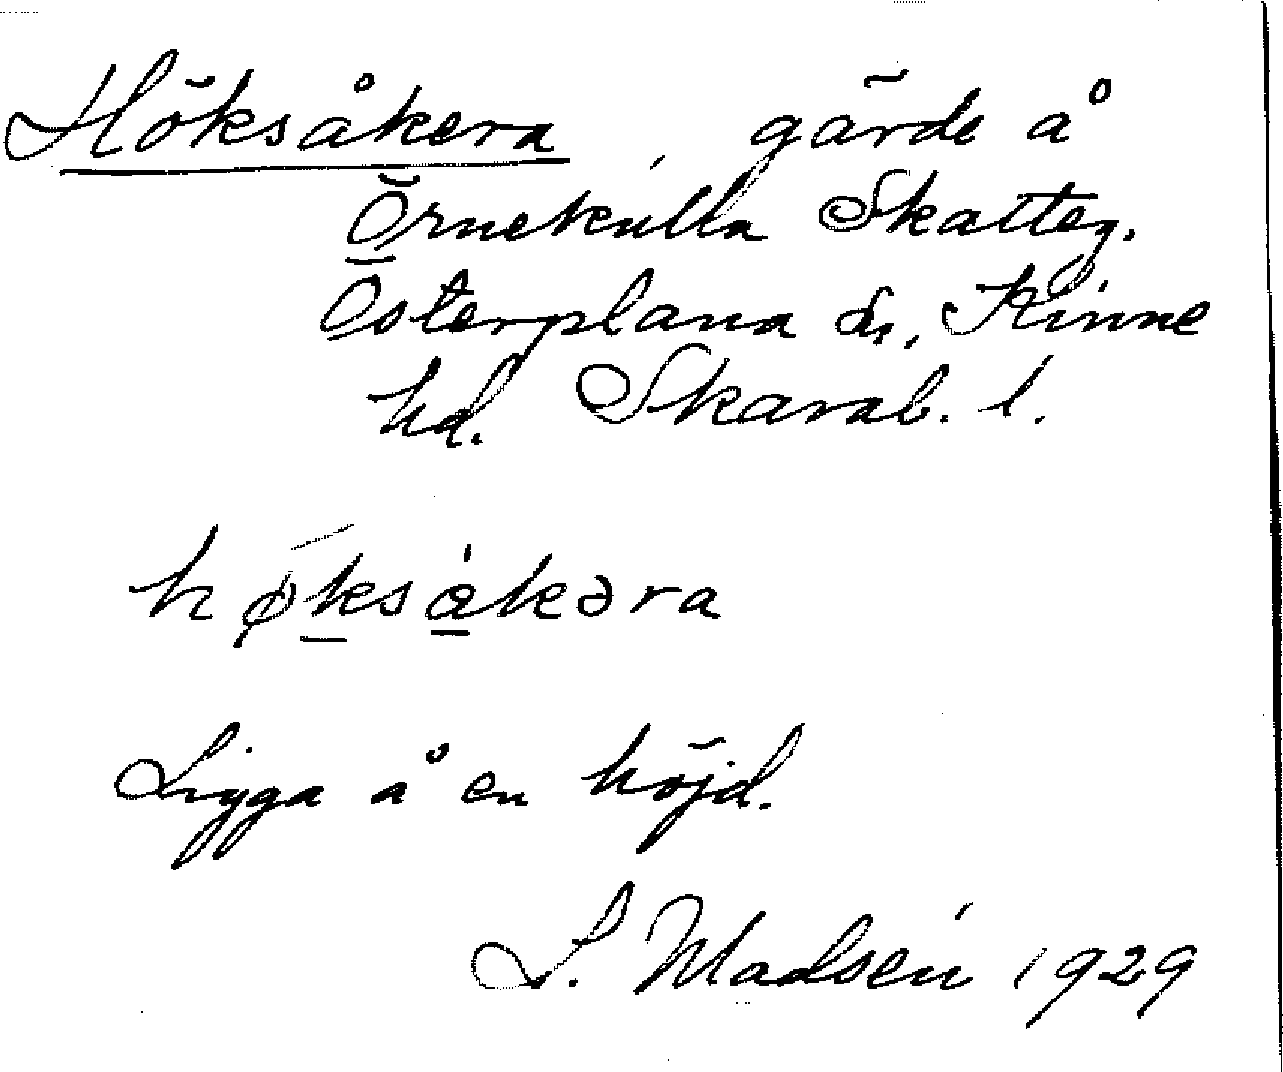 Höksåkera, gärde å
Örnekulla Skatteg.
Österplana sn, Kinne
hd. Skarab. l.
høksåkəra
Ligga å en höjd.
L. Madsén 1929